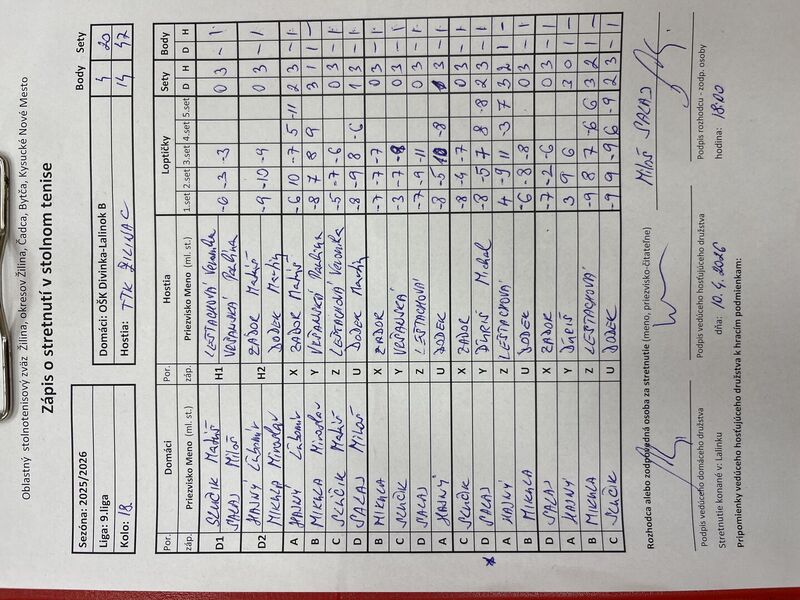 Oblastný stolnotenisový zväz Žilina, okresov Žilina, Čadca, Bytča, Kysucké Nové Mesto
Zápis o stretnutí v stolnom tenise
Sezóna: 2025/2026
Liga: 9.liga
Kolo: 18.
Body Sety
Domáci: OŠK Divinka-Lalinok B 4 20
Hostia: TTK ŽILINA C 14 47
Por. Domáci Por. Hostia Loptičky Sety Body
záp. Priezvisko Meno (ml. st.) záp. Priezvisko Meno (ml. st.) 1.set 2.set 3.set 4.set 5.set D H D H
D1 SLUČIK Matúš H1 LEŠTACHOVÁ Veronika -6 -3 -3 0 3 - 1
SALAJ Miloš VRŠANSKÁ Paulína
D2 HAJNÝ Ľubomír H2 ZÁDOR Matúš -9 -10 -9 0 3 - 1
MIKULA Miroslav DODEK Martin
A HAJNÝ Ľubomír X ZÁDOR Matúš -6 10 -7 5 -11 2 3 - 1
B MIKULA Miroslav Y VRŠANSKÁ Paulína -8 7 8 9 3 1 1 -
C SLUČIK Matúš Z LEŠTACHOVÁ Veronika -5 -7 -6 0 3 - 1
D SALAJ Miloš U DODEK Martin -8 -9 8 -6 1 3 - 1
B MIKULA X ZÁDOR -7 -7 -7 0 3 - 1
C SLUČIK Y VRŠANSKÁ -3 -7 -8 0 3 - 1
D SALAJ Z LEŠTACHOVÁ -7 -9 -11 0 3 - 1
A HAJNÝ U DODEK -8 -5 10 -8 1 3 - 1
C SLUČIK X ZÁDOR -8 -4 -7 0 3 - 1
D SALAJ Y ĎURIŠ Michal -8 -5 7 8 -8 2 3 - 1
A HAJNÝ Z LEŠTACHOVÁ 4 -9 11 -3 7 3 2 1 -
B MIKULA U DODEK -6 -8 -8 0 3 - 1
D SALAJ X ZÁDOR -7 -2 -6 0 3 - 1
A HAJNÝ Y ĎURIŠ 3 9 6 3 0 1 -
B MIKULA Z LEŠTACHOVÁ -9 8 7 -6 6 3 2 1 -
C SLUČIK U DODEK -9 9 -9 6 -9 2 3 - 1
Rozhodca alebo zodpovedná osoba za stretnutie (meno, priezvisko-čitateľne) Miloš SALAJ
Podpis vedúceho domáceho družstva Podpis vedúceho hosťujúceho družstva Podpis rozhodcu - zodp. osoby
Stretnutie konané v: Lalinku dňa: 10.4.2026 hodina: 18:00
Pripomienky vedúceho hosťujúceho družstva k hracím podmienkam: